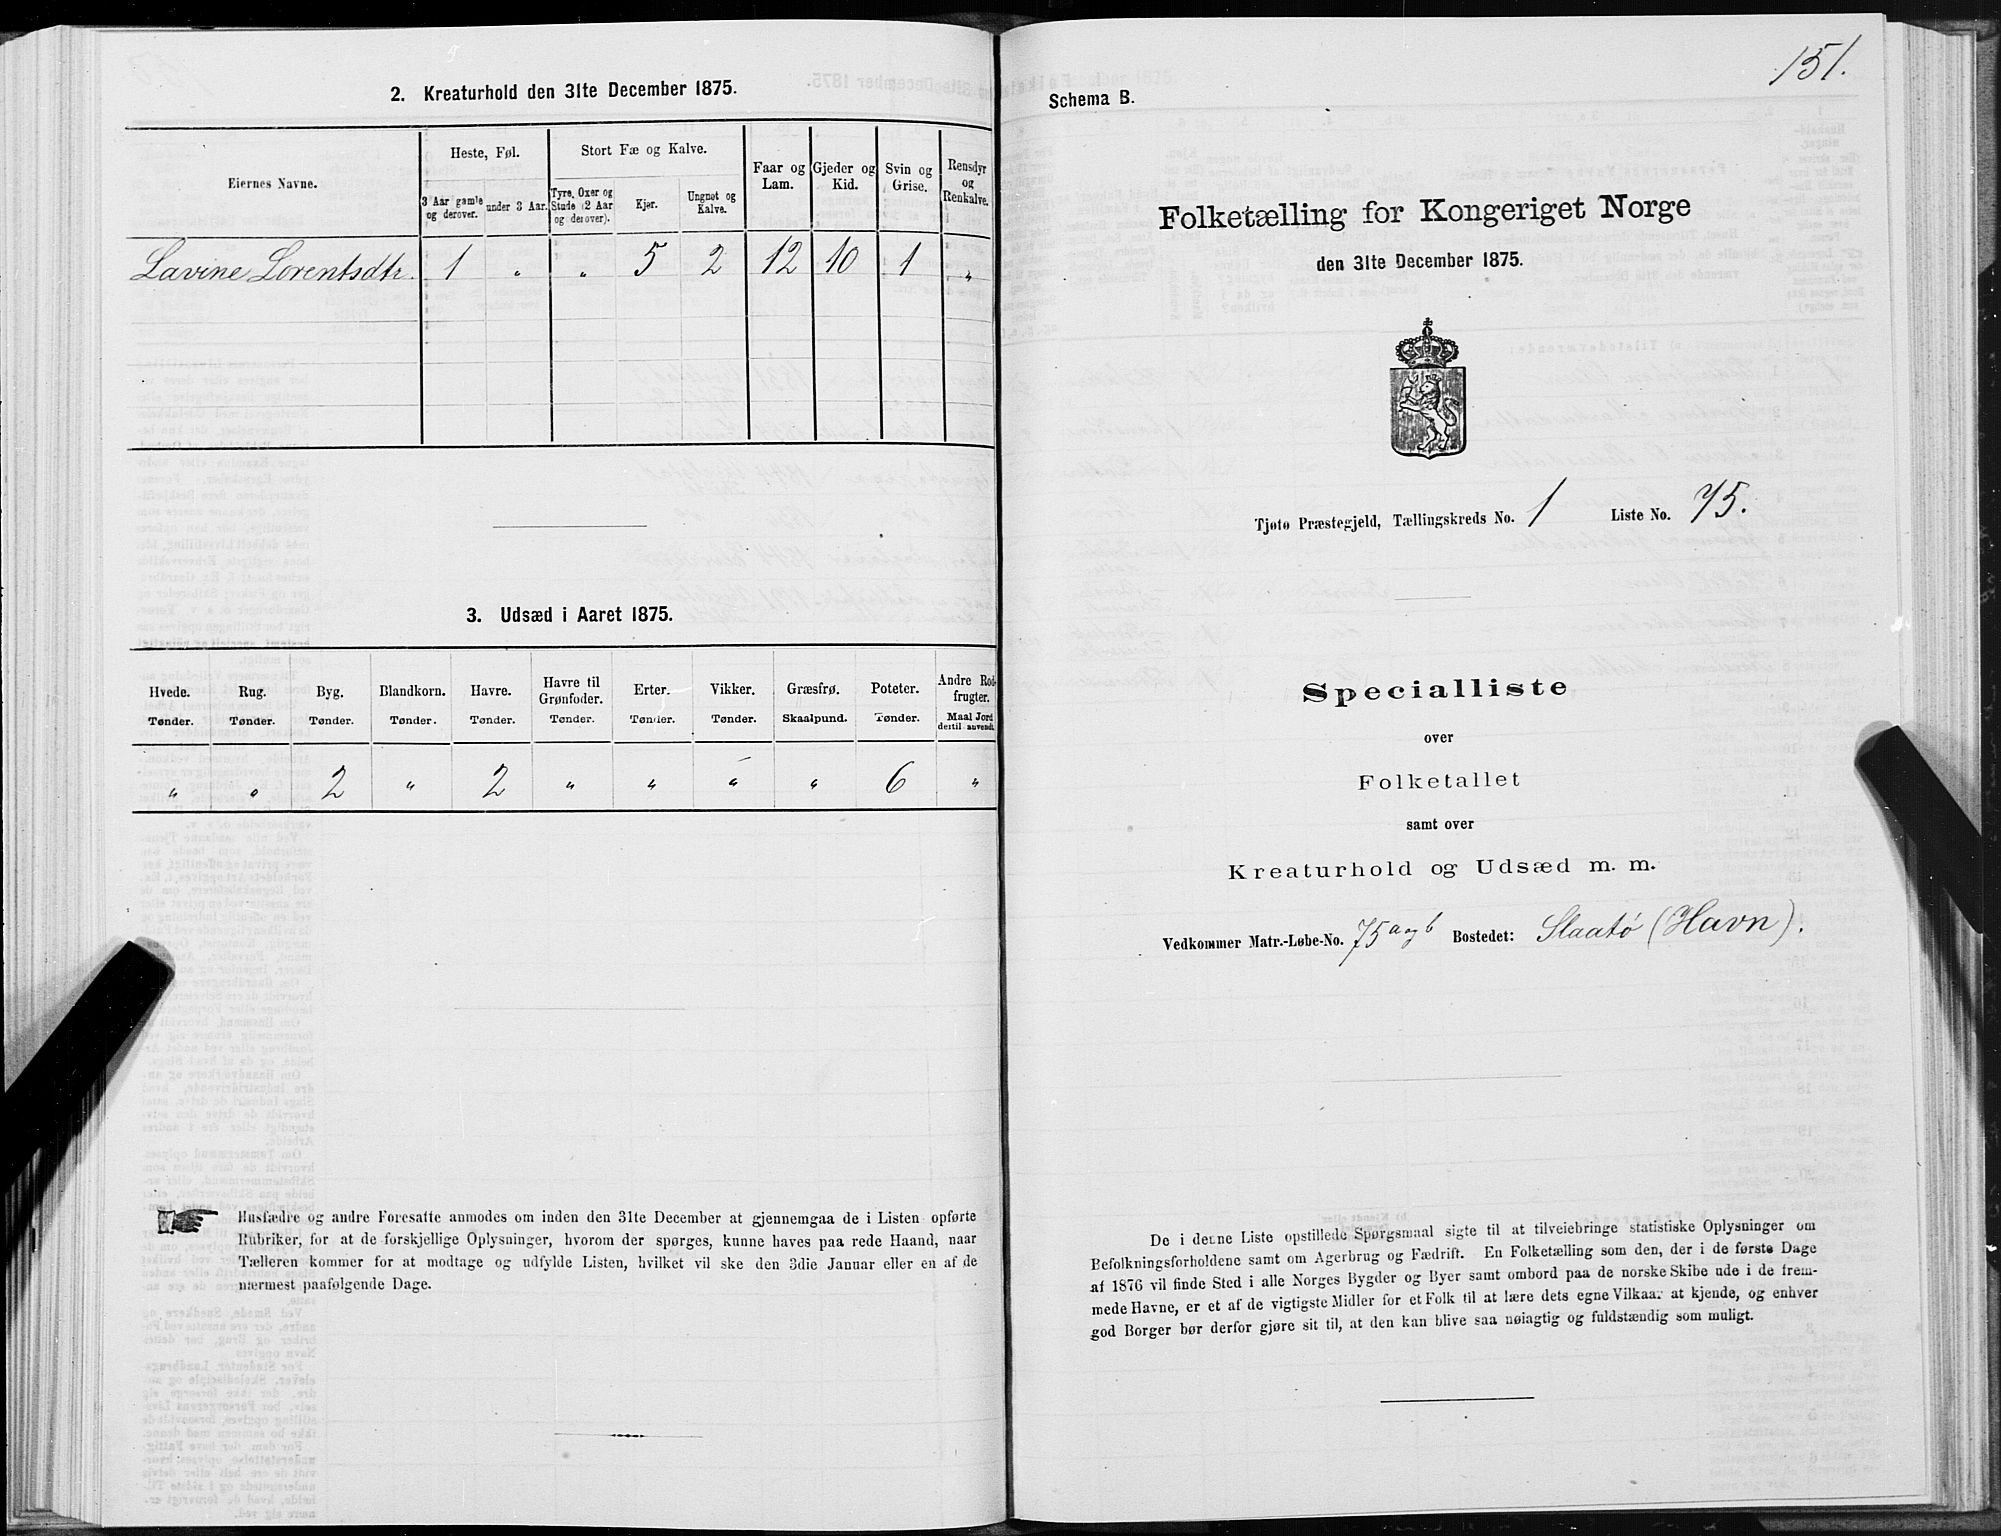 2. Kreaturhold den 31te December 1875.
Eiernes Navne.
Heste, Føl.
Stort Fæ og Kalve.
Faar og Lam.
Gjeder og Kid.
Svin og Grise.
Rensdyr og Renkalve.
3 Aar gamle og derover.
under 3 Aar.
Tyre, Oxer og Stude (2 Aar og derover).
Kjør.
Ungnøt og Kalve.
Lavine Lorentsdtr. 1 " " 5 2 12 10 1 "
3. Udsæd i Aaret 1875.
Hvede. Rug. Byg. Blandkorn. Havre. Havre til Grønfoder. Erter. Vikker. Græsfrø. Poteter. Andre Rodfrugter.
Tønder. Tønder. Tønder. Tønder. Tønder. Tønder. Tønder. Tønder. Skaalpund. Tønder. Maal Jord dertil anvendt.
" " 2 " 2 " " " " 6 "
Husfædre og andre Foresatte anmodes om inden den 31te December at gjennemgaa de i Listen opførte
Rubriker, for at de forskjellige Oplysninger, hvorom der spørges, kunne haves paa rede Haand, naar
Tælleren kommer for at modtage og udfylde Listen, hvilket vil ske den 3die Januar eller en af de
nærmest paafølgende Dage.
151.
Schema B.
Folketælling for Kongeriget Norge
den 31te December 1875.
Tjøtø Præstegjeld, Tællingskreds No. 1 Liste No. 75.
Specialliste
over
Folketallet
samt over
Kreaturhold og Udsæd m. m.
Vedkommer Matr.-Løbe-No. 75 a og b Bostedet: Slaatø (Havn).
De i denne Liste opstillede Spørgsmaal sigte til at tilveiebringe statistiske Oplysninger om
Befolkningsforholdene samt om Agerbrug og Fædrift. En Folketælling som den, der i de første Dage
af 1876 vil finde Sted i alle Norges Bygder og Byer samt ombord paa de norske Skibe ude i de frem-
mede Havne, er et af de vigtigste Midler for et Folk til at lære dets egne Vilkaar at kjende, og enhver
god Borger bør derfor gjøre sit til, at den kan blive saa nøiagtig og fuldstændig som muligt.